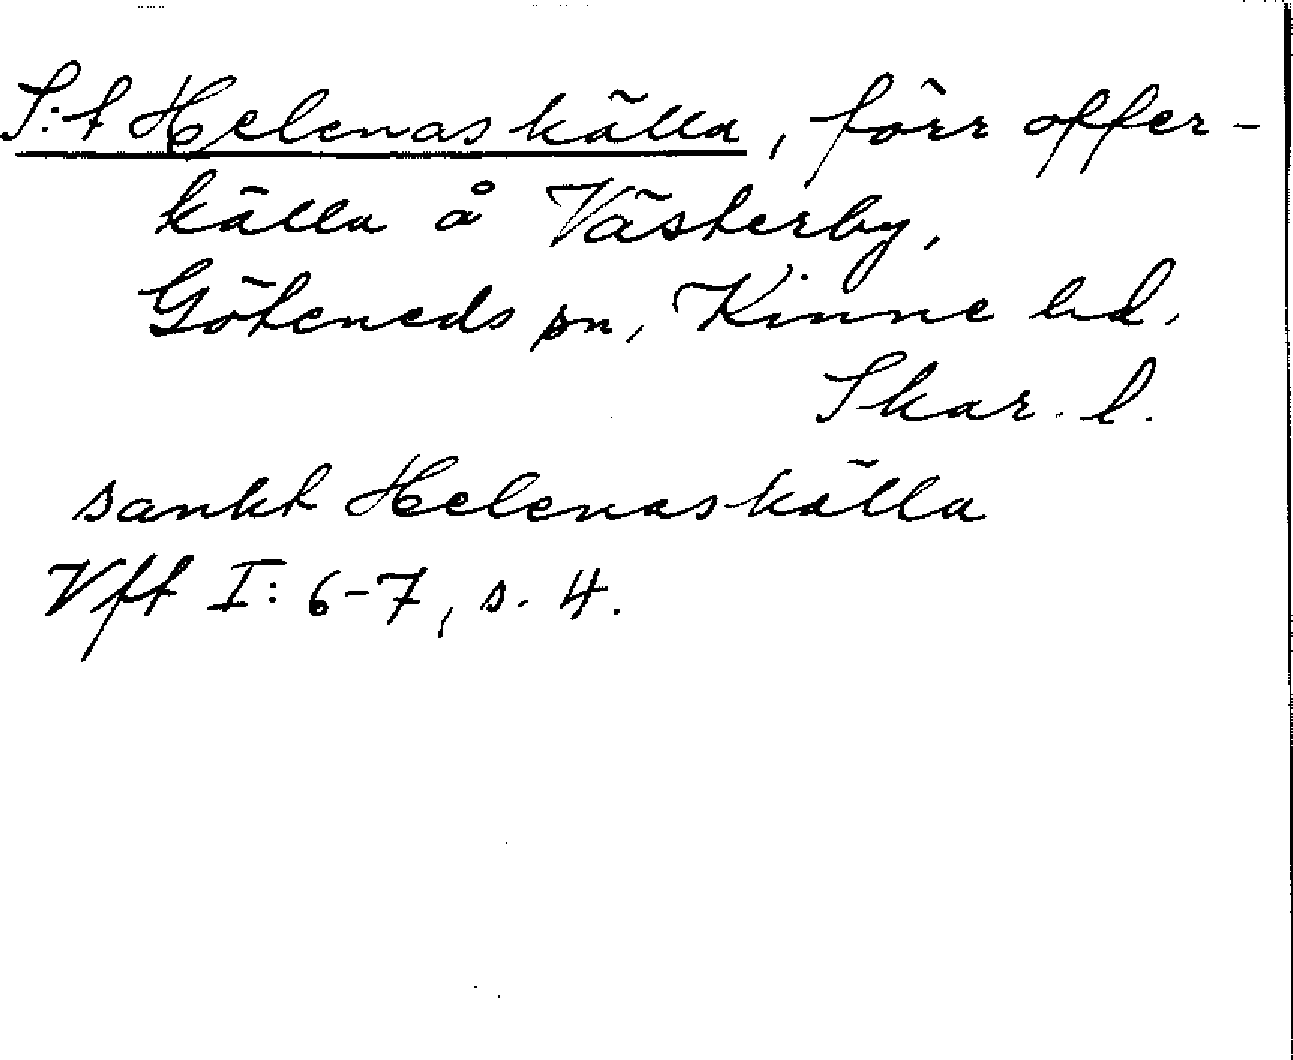 S:t Helenas källa, förr offer-
källa å Västerby,
Göteneds sn, Kinne hd.
Skar. l.
sankt Helenaskälla
Vft I: 6-7, s. 4.